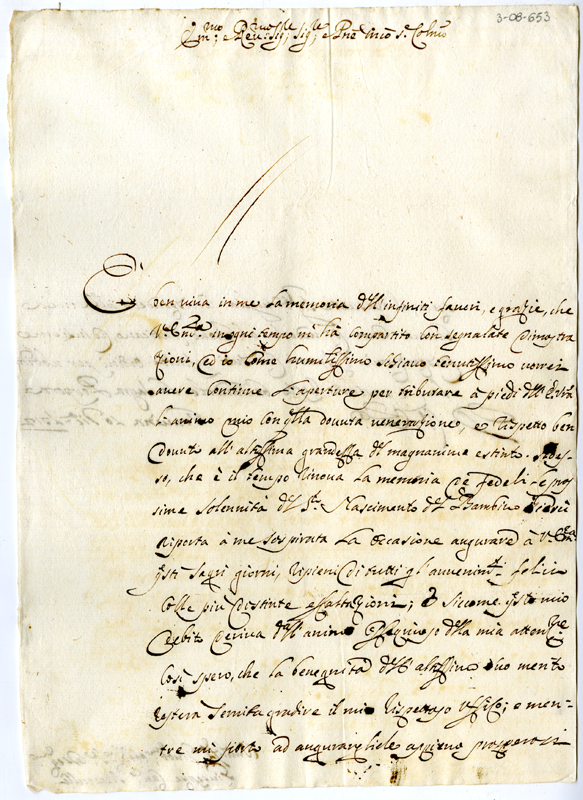 3-08-653
Sig.re Sig.re e Pne mio
È ben viva in me la memoria dell' infiniti favori, e grazie, che
V. Em.za in ogni tempo mi hà compartito con segnalate dimostra
zioni, ed io come humilissimo schiavo tenutissimo vorrei
avere continue l'aperture per tributare à piedi dell'
l'animo mio con qlla dovuta venerazione, e rispetto ben
dovuto all' altissima grandezza del magnanimo Ades-
so, che è il tempo rinova la memoria de fedeli le pros
sime solennità del S.to Nascimento del Bambino
riporta à me sospirata la occasione augurare à V. Em.za
qsti sagri giorni, ripieni di tutti gli avvenim.ti felici
colle piu distinte essaltazioni; E siccome qsto mio
debito deriva dall' animo ossequioso della mia
così spero, che la benegnità dell' altissimo suo
resterà servita gradire il mio rispettoso uffizio; e men-
tre mi porto ad augurargliele prosperosi